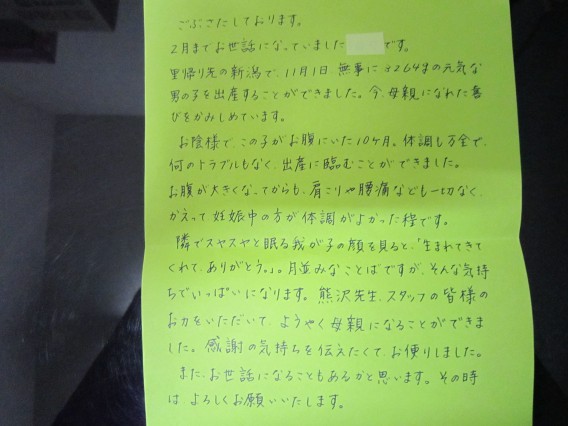 ごぶさたしております。
2月までお世話になっていました です。
里帰り先の新潟で、11月1日、無事に3264gの元気な
男の子を出産することができました。今、母親になれた喜
びをかみしめています。
お陰様で、この子がお腹にいた10ヶ月。体調も万全で、
何のトラブルもなく、出産に臨むことができました。
お腹が大きくなってからも、肩こりや腰痛なども一切なく、
かえって、妊娠中の方が体調がよかった程です。
隣でスヤスヤと眠る我が子の顔を見ると、「生まれてきて
くれて、ありがとう。」。月並みなことばですが、そんな気持
ちでいっぱいになります。熊沢先生、スタッフの皆様の
お力をいただいて、ようやく母親になることができま
した。感謝の気持ちを伝えたくて、お便りしました。
また、お世話になることもあるかと思います。その時
は、よろしくお願いいたします。